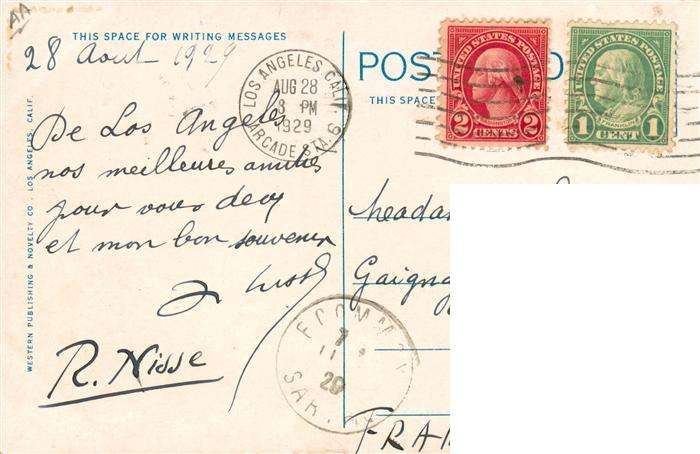 AA
THIS SPACE FOR WRITING MESSAGES
28 Aout 1929
De Los Angeles
nos meilleures amitiés
pour vous deux
et mon bon souvenir
R. Nisse
WESTERN PUBLISHING & NOVELTY CO., LOS ANGELES, CALIF.
LOS ANGELES CALIF.
AUG 28
3 PM
1929
ARCADE STA. 6
POST
THIS SPACE
UNITED STATES POSTAGE
2 CENTS 2
UNITED STATES POSTAGE
FRANKLIN
1 CENT 1
Gaigna
ECOMMOY
11
SAR
FRAN